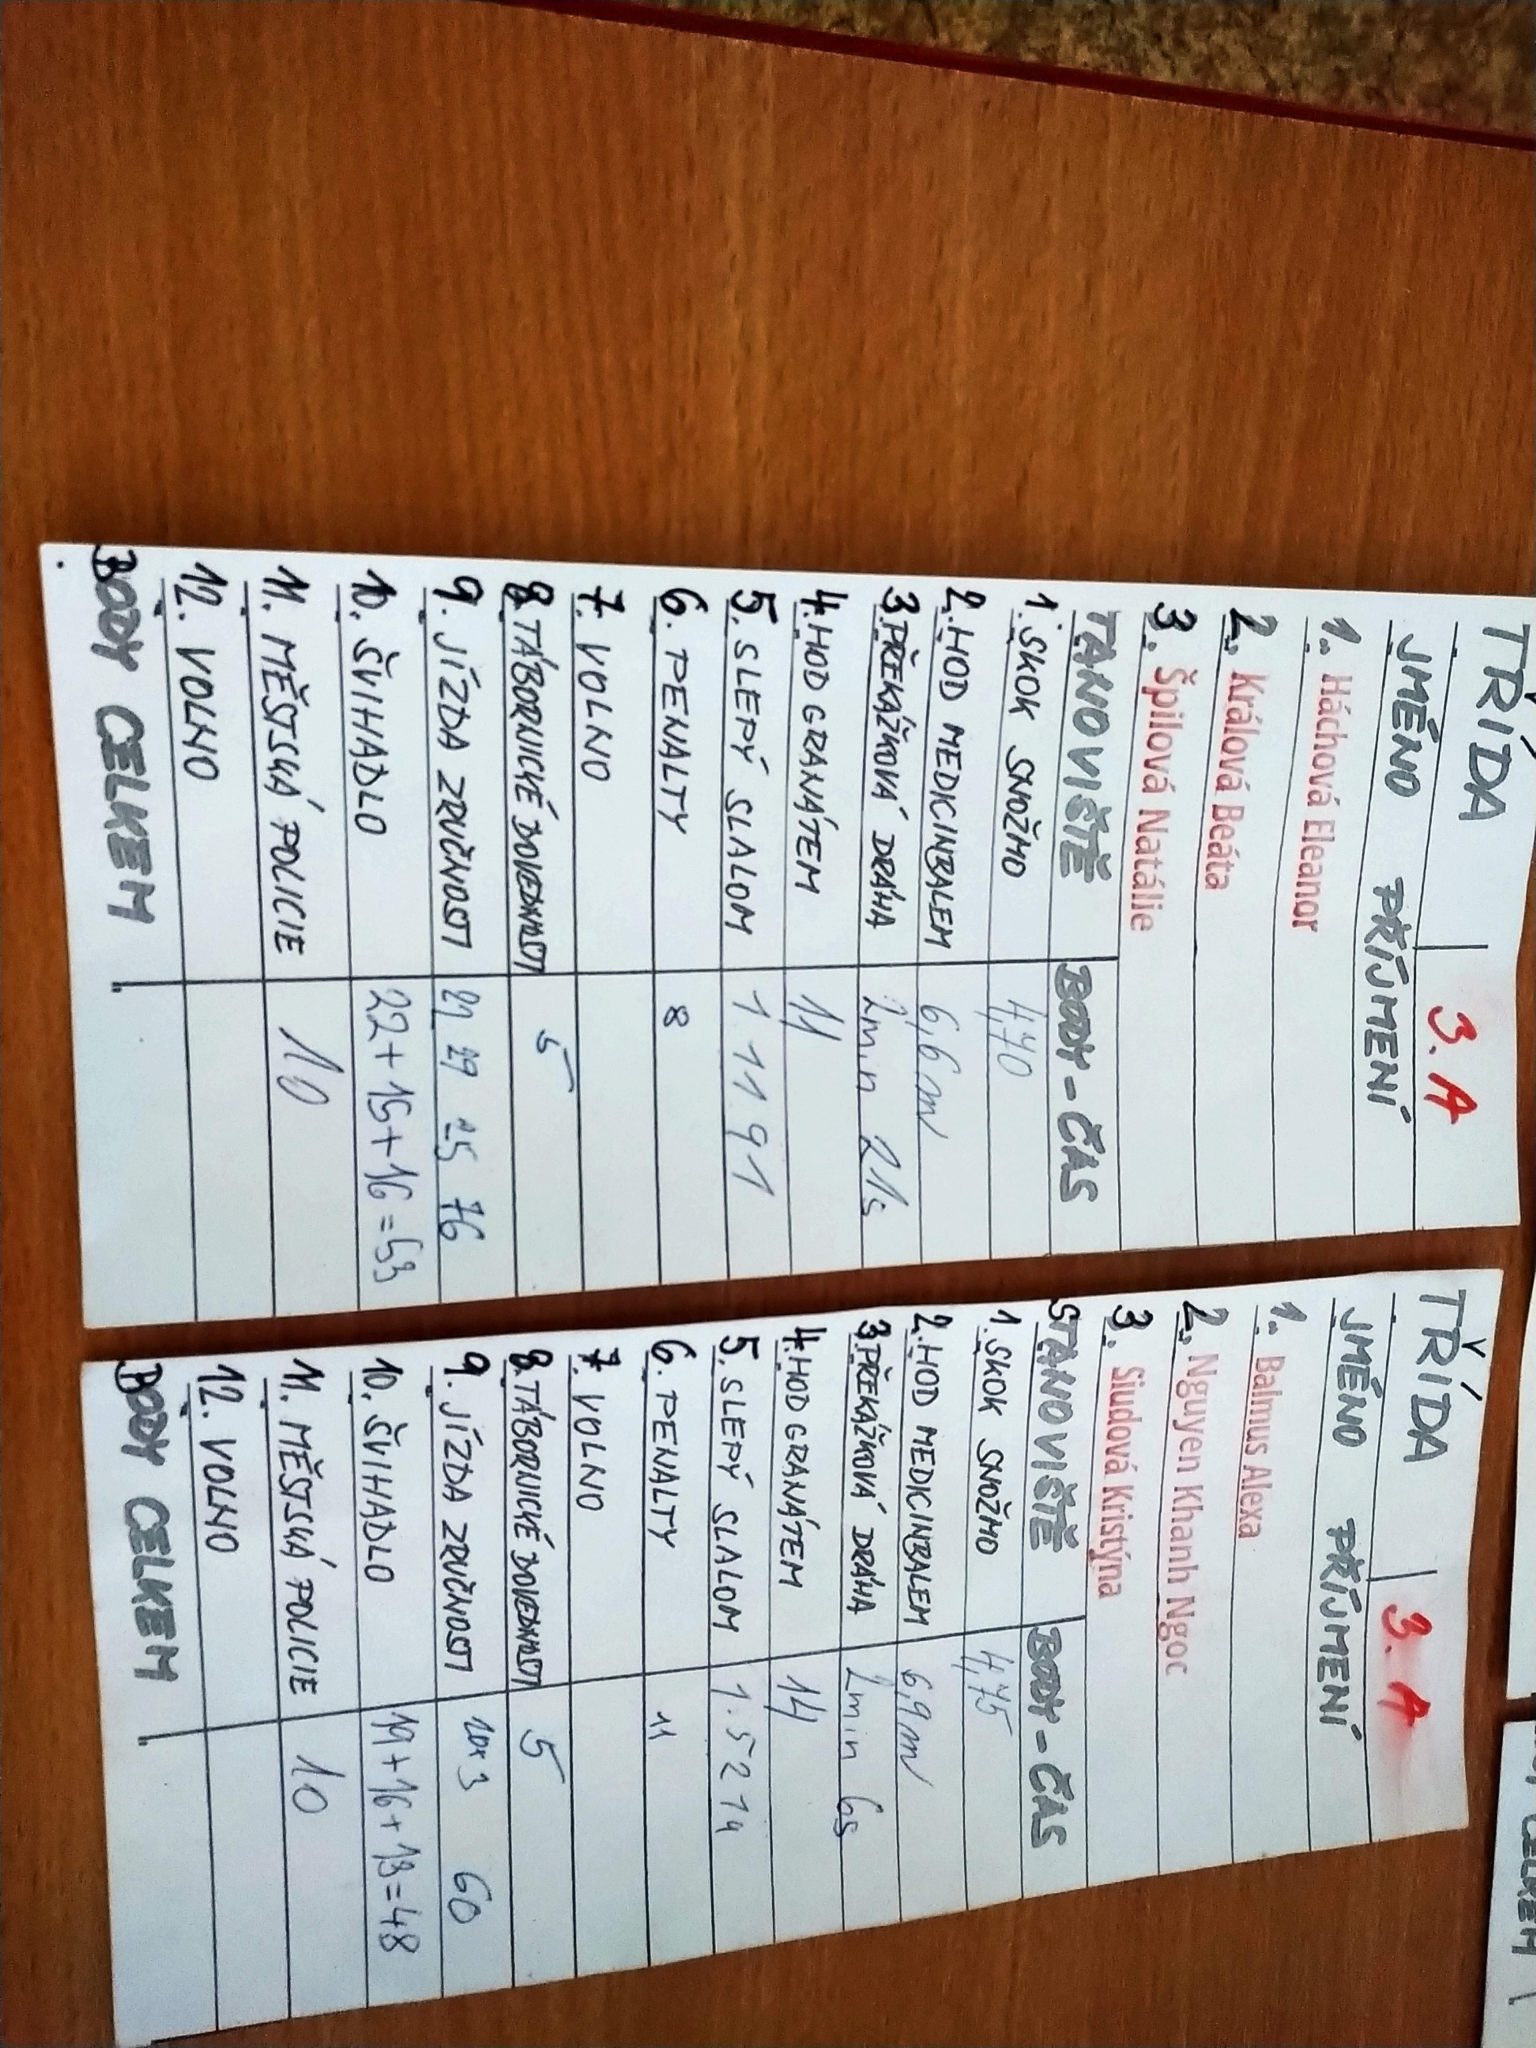 TŘÍDA 3. A
JMÉNO PŘÍJMENÍ
1. Háchová Eleanor
2. Králová Beáta
3. Špilová Natálie
TANOVIŠTĚ BODY - ČAS
1. SKOK SNOŽMO 4,70
2. HOD MEDICINBALEM 6,6 m
3. PŘEKÁŽKOVÁ DRÁHA 2min 21s
4. HOD GRANÁTEM 11
5. SLEPÝ SLALOM 1 11 91
6. PENALTY 8
7. VOLNO
8. TÁBORNICKÉ DOVEDNOSTI 5
9. JÍZDA ZRUČNOSTI 76
10. ŠVIHADLO 22 + 15 + 16 = 53
11. MĚSTSKÁ POLICIE 10
12. VOLNO
BODY CELKEM
TŘÍDA 3. A
JMÉNO PŘÍJMENÍ
1. Balmus Alexa
2. Nguyen Khanh Ngoc
3. Siudová Kristýna
STANOVIŠTĚ BODY - ČAS
1. SKOK SNOŽMO 4,75
2. HOD MEDICINBALEM 6,9 m
3. PŘEKÁŽKOVÁ DRÁHA 2min 6s
4. HOD GRANÁTEM 14
5. SLEPÝ SLALOM 1. 52 14
6. PENALTY 11
7. VOLNO
8. TÁBORNICKÉ DOVEDNOSTI 5
9. JÍZDA ZRUČNOSTI 60
10. ŠVIHADLO 19 + 16 + 13 = 48
11. MĚSTSKÁ POLICIE 10
12. VOLNO
BODY CELKEM
CELKEM